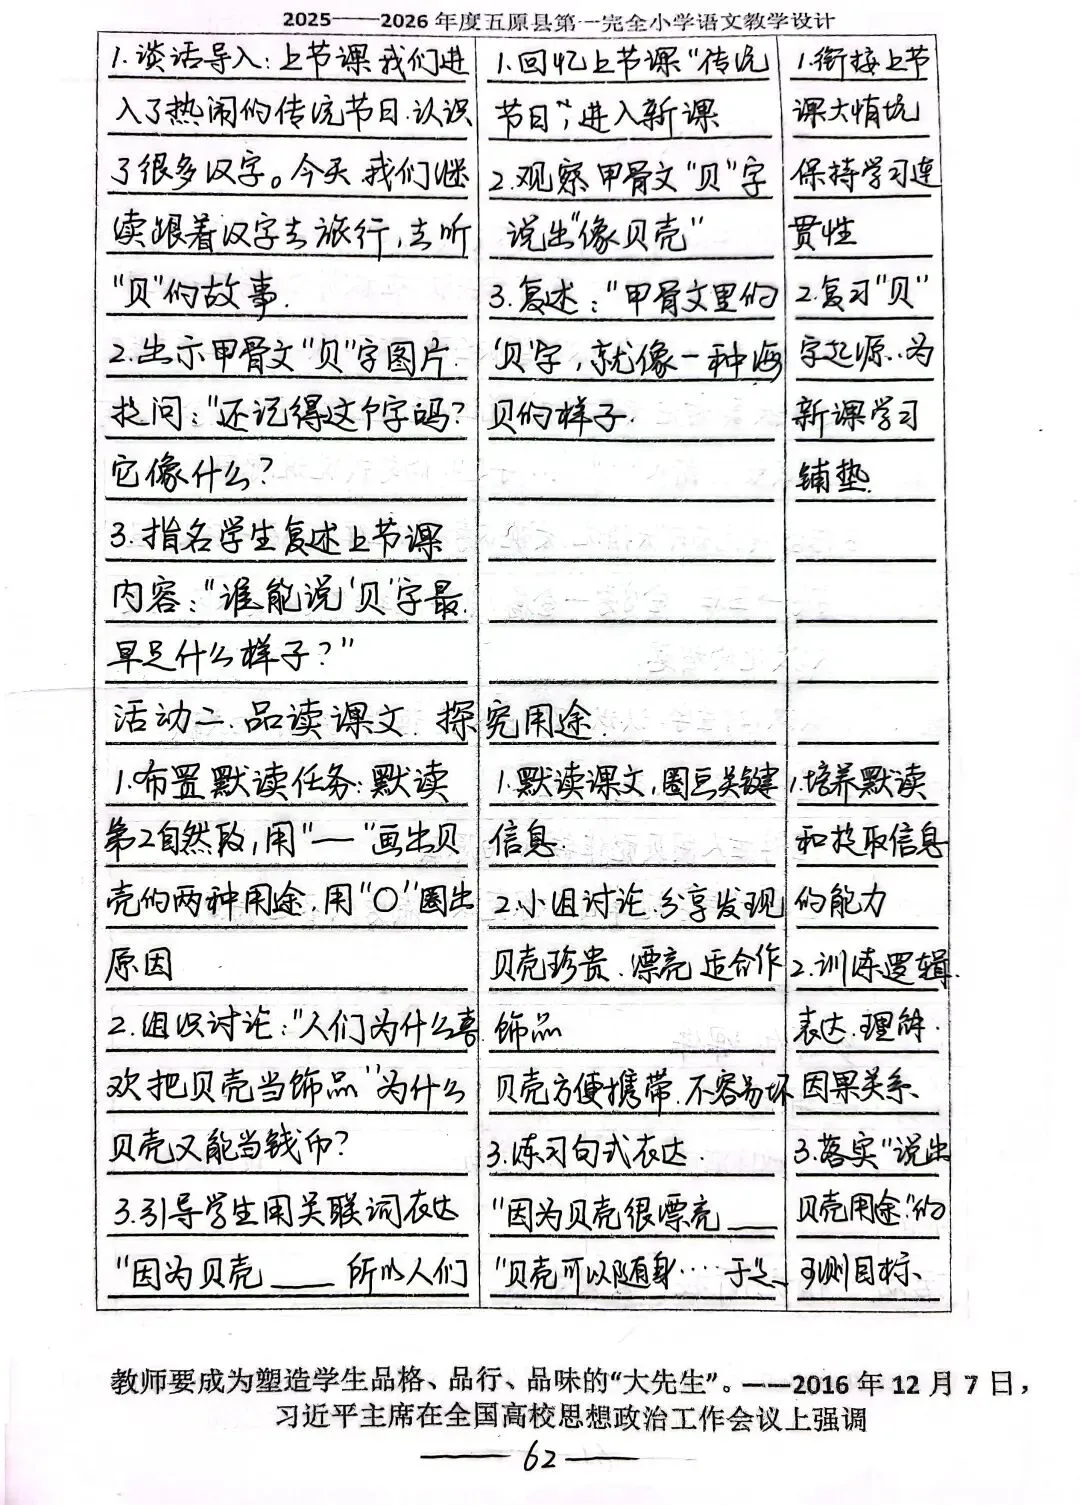 2025——2026年度五原县第一完全小学语文教学设计
1.谈话导入:上节课我们进
入了热闹的传统节日.认识
了很多汉字。今天 我们继
续跟着汉字去旅行,去听
"贝"的故事.
2.出示甲骨文"贝"字图片.
提问:"还记得这个字吗?
它像什么?
3.指名学生复述上节课
内容:"谁能说'贝'字最
早是什么样子?"
1.回忆上节课"传统
节日",进入新课
2.观察甲骨文"贝"字
说出"像贝壳"
3.复述:"甲骨文里的
'贝'字,就像一种海
贝的样子.
1.衔接上节
课大情境
保持学习连
贯性
2.复习"贝"
字起源..为
新课学习
铺垫.
活动二.品读课文.探究用途.
1.布置默读任务:默读
第2自然段,用"—"画出贝
壳的两种用途.用"O"圈出
原因
2.组织讨论:"人们为什么喜
欢把贝壳当饰品"为什么
贝壳又能当钱币?
3.引导学生用关联词表达
"因为贝壳____所以人们
1.默读课文,圈画关键
信息
2.小组讨论.分享发现
贝壳珍贵.漂亮 适合作
饰品
贝壳方便携带.不容易坏
3.练习句式表达.
"因为贝壳很漂亮____
"贝壳可以随身……于是、
1.培养默读
和提取信息
的能力
2.训练逻辑.
表达.理解.
因果关系、
3.落实"说出
贝壳用途"的
可测目标、
教师要成为塑造学生品格、品行、品味的“大先生”。——2016年12月7日,
习近平主席在全国高校思想政治工作会议上强调
——62——